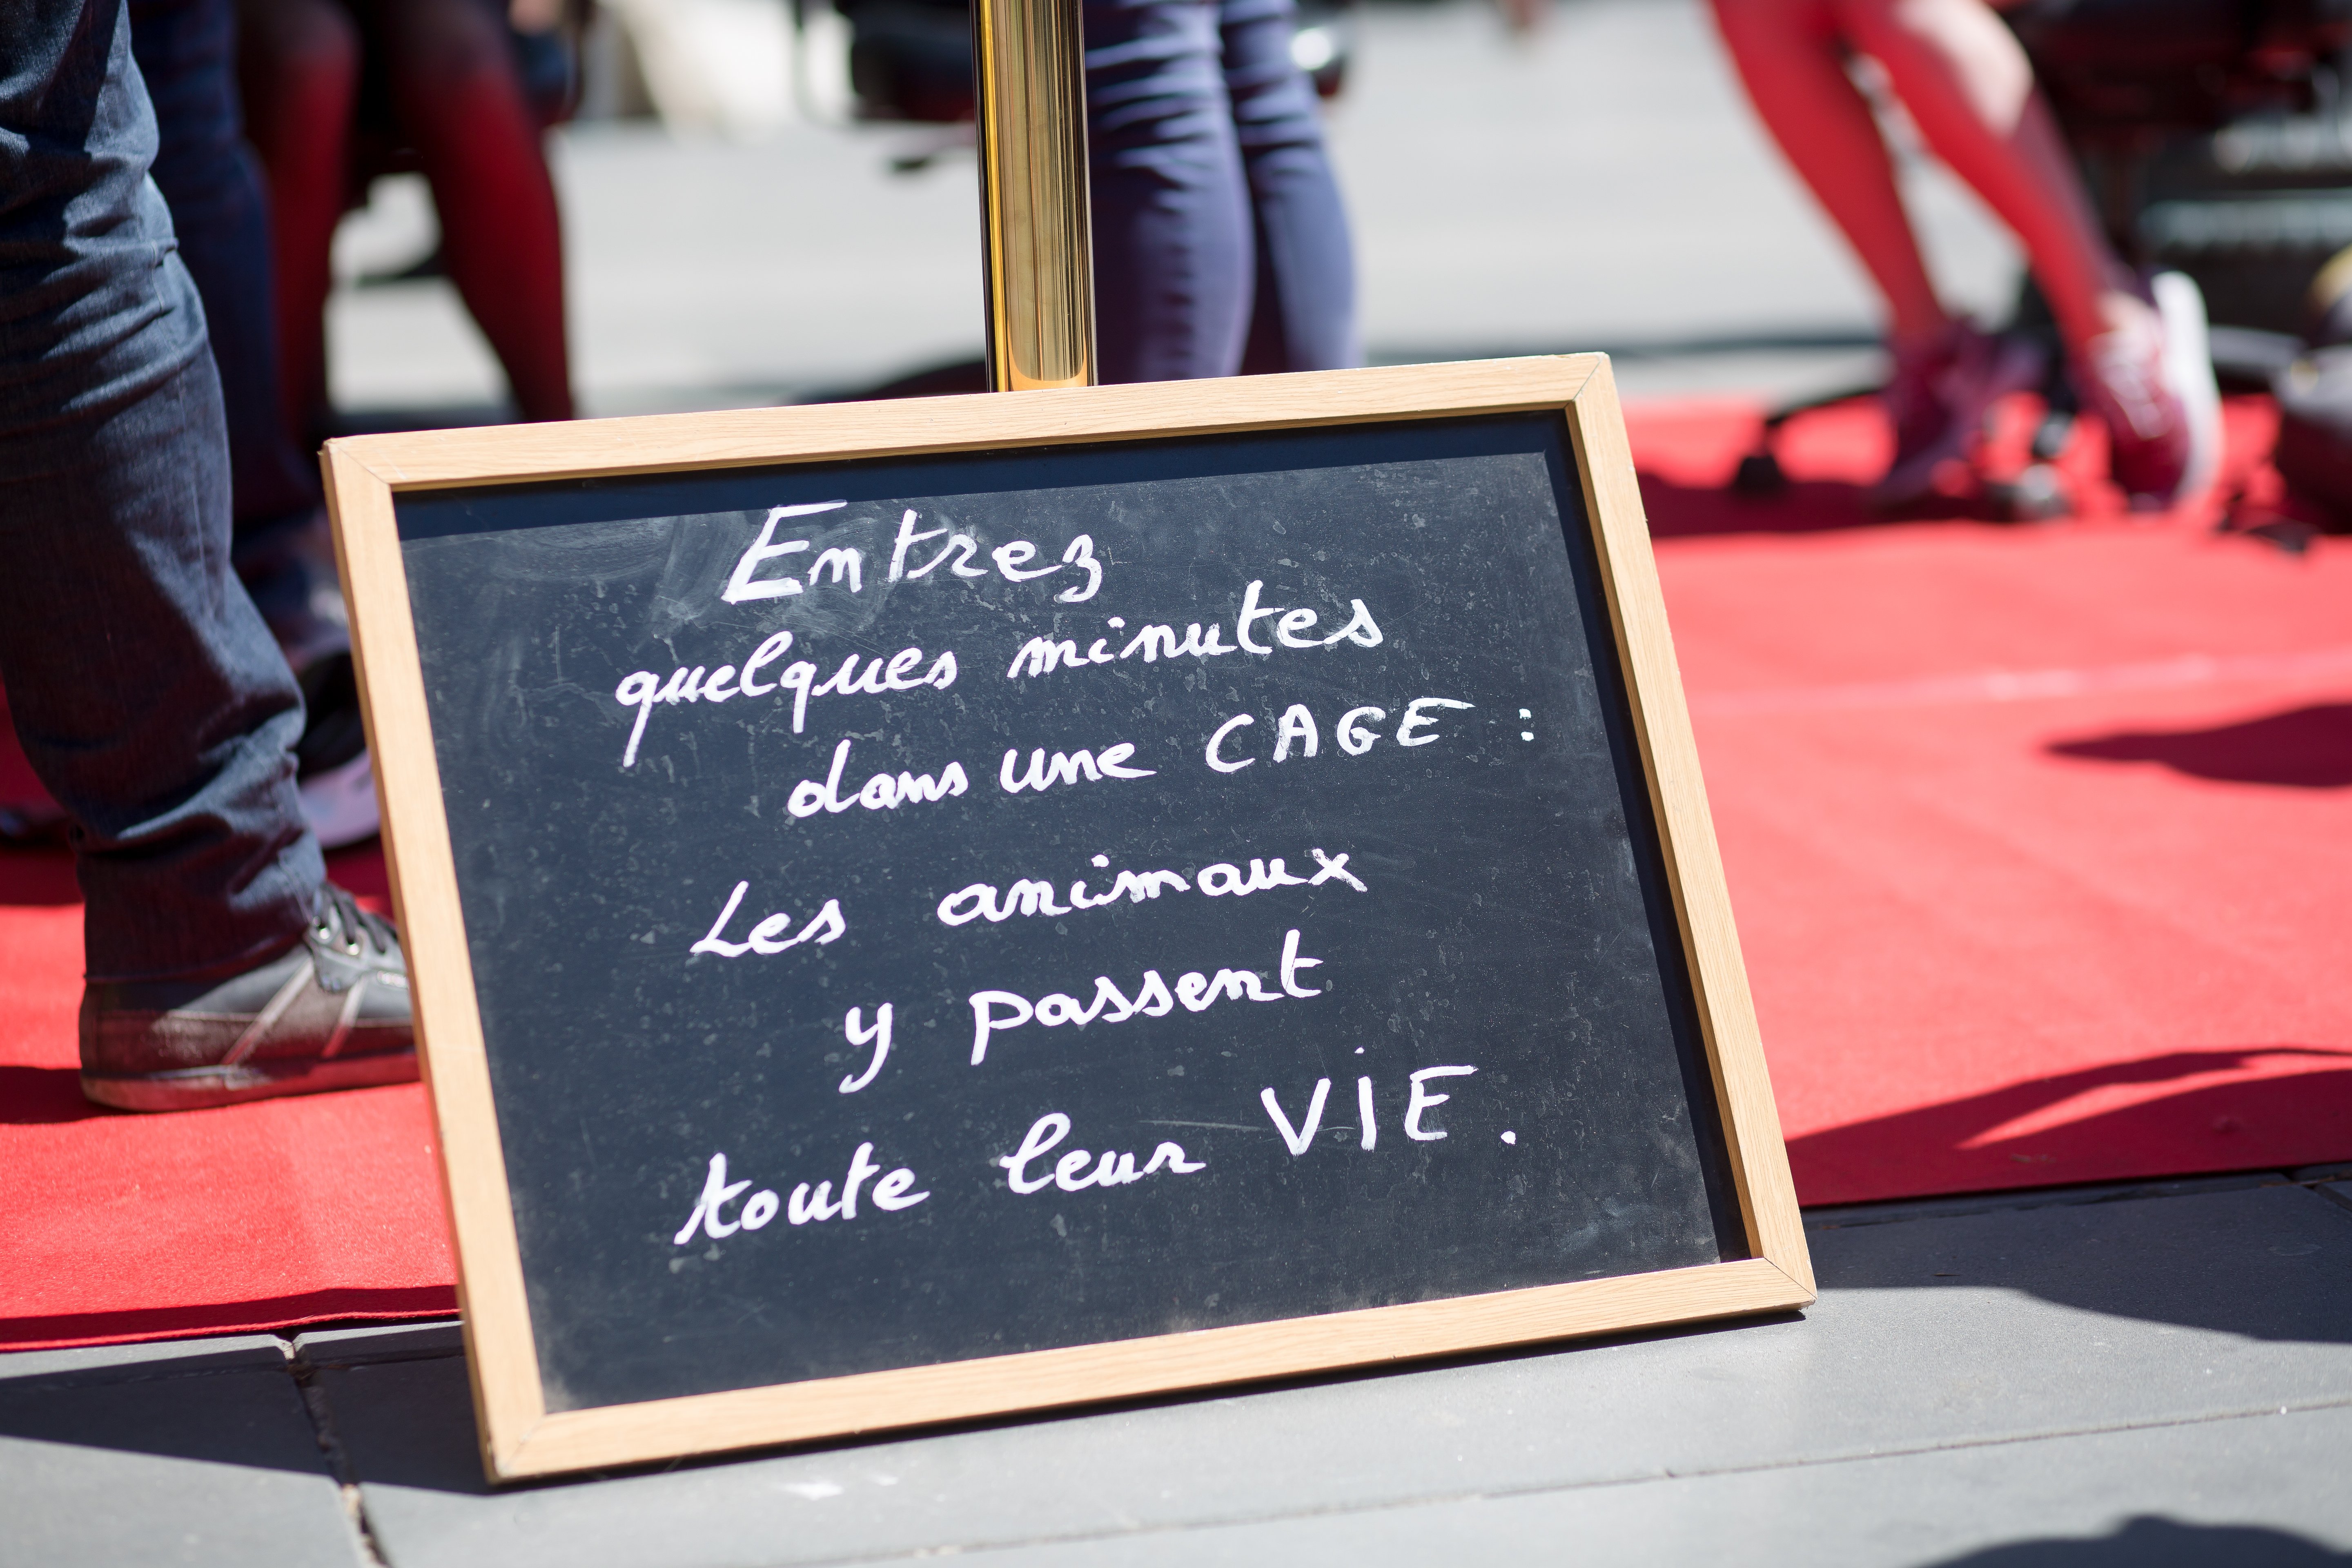 Entrez
quelques minutes
dans une CAGE :
Les animaux
y passent
toute leur ViE.